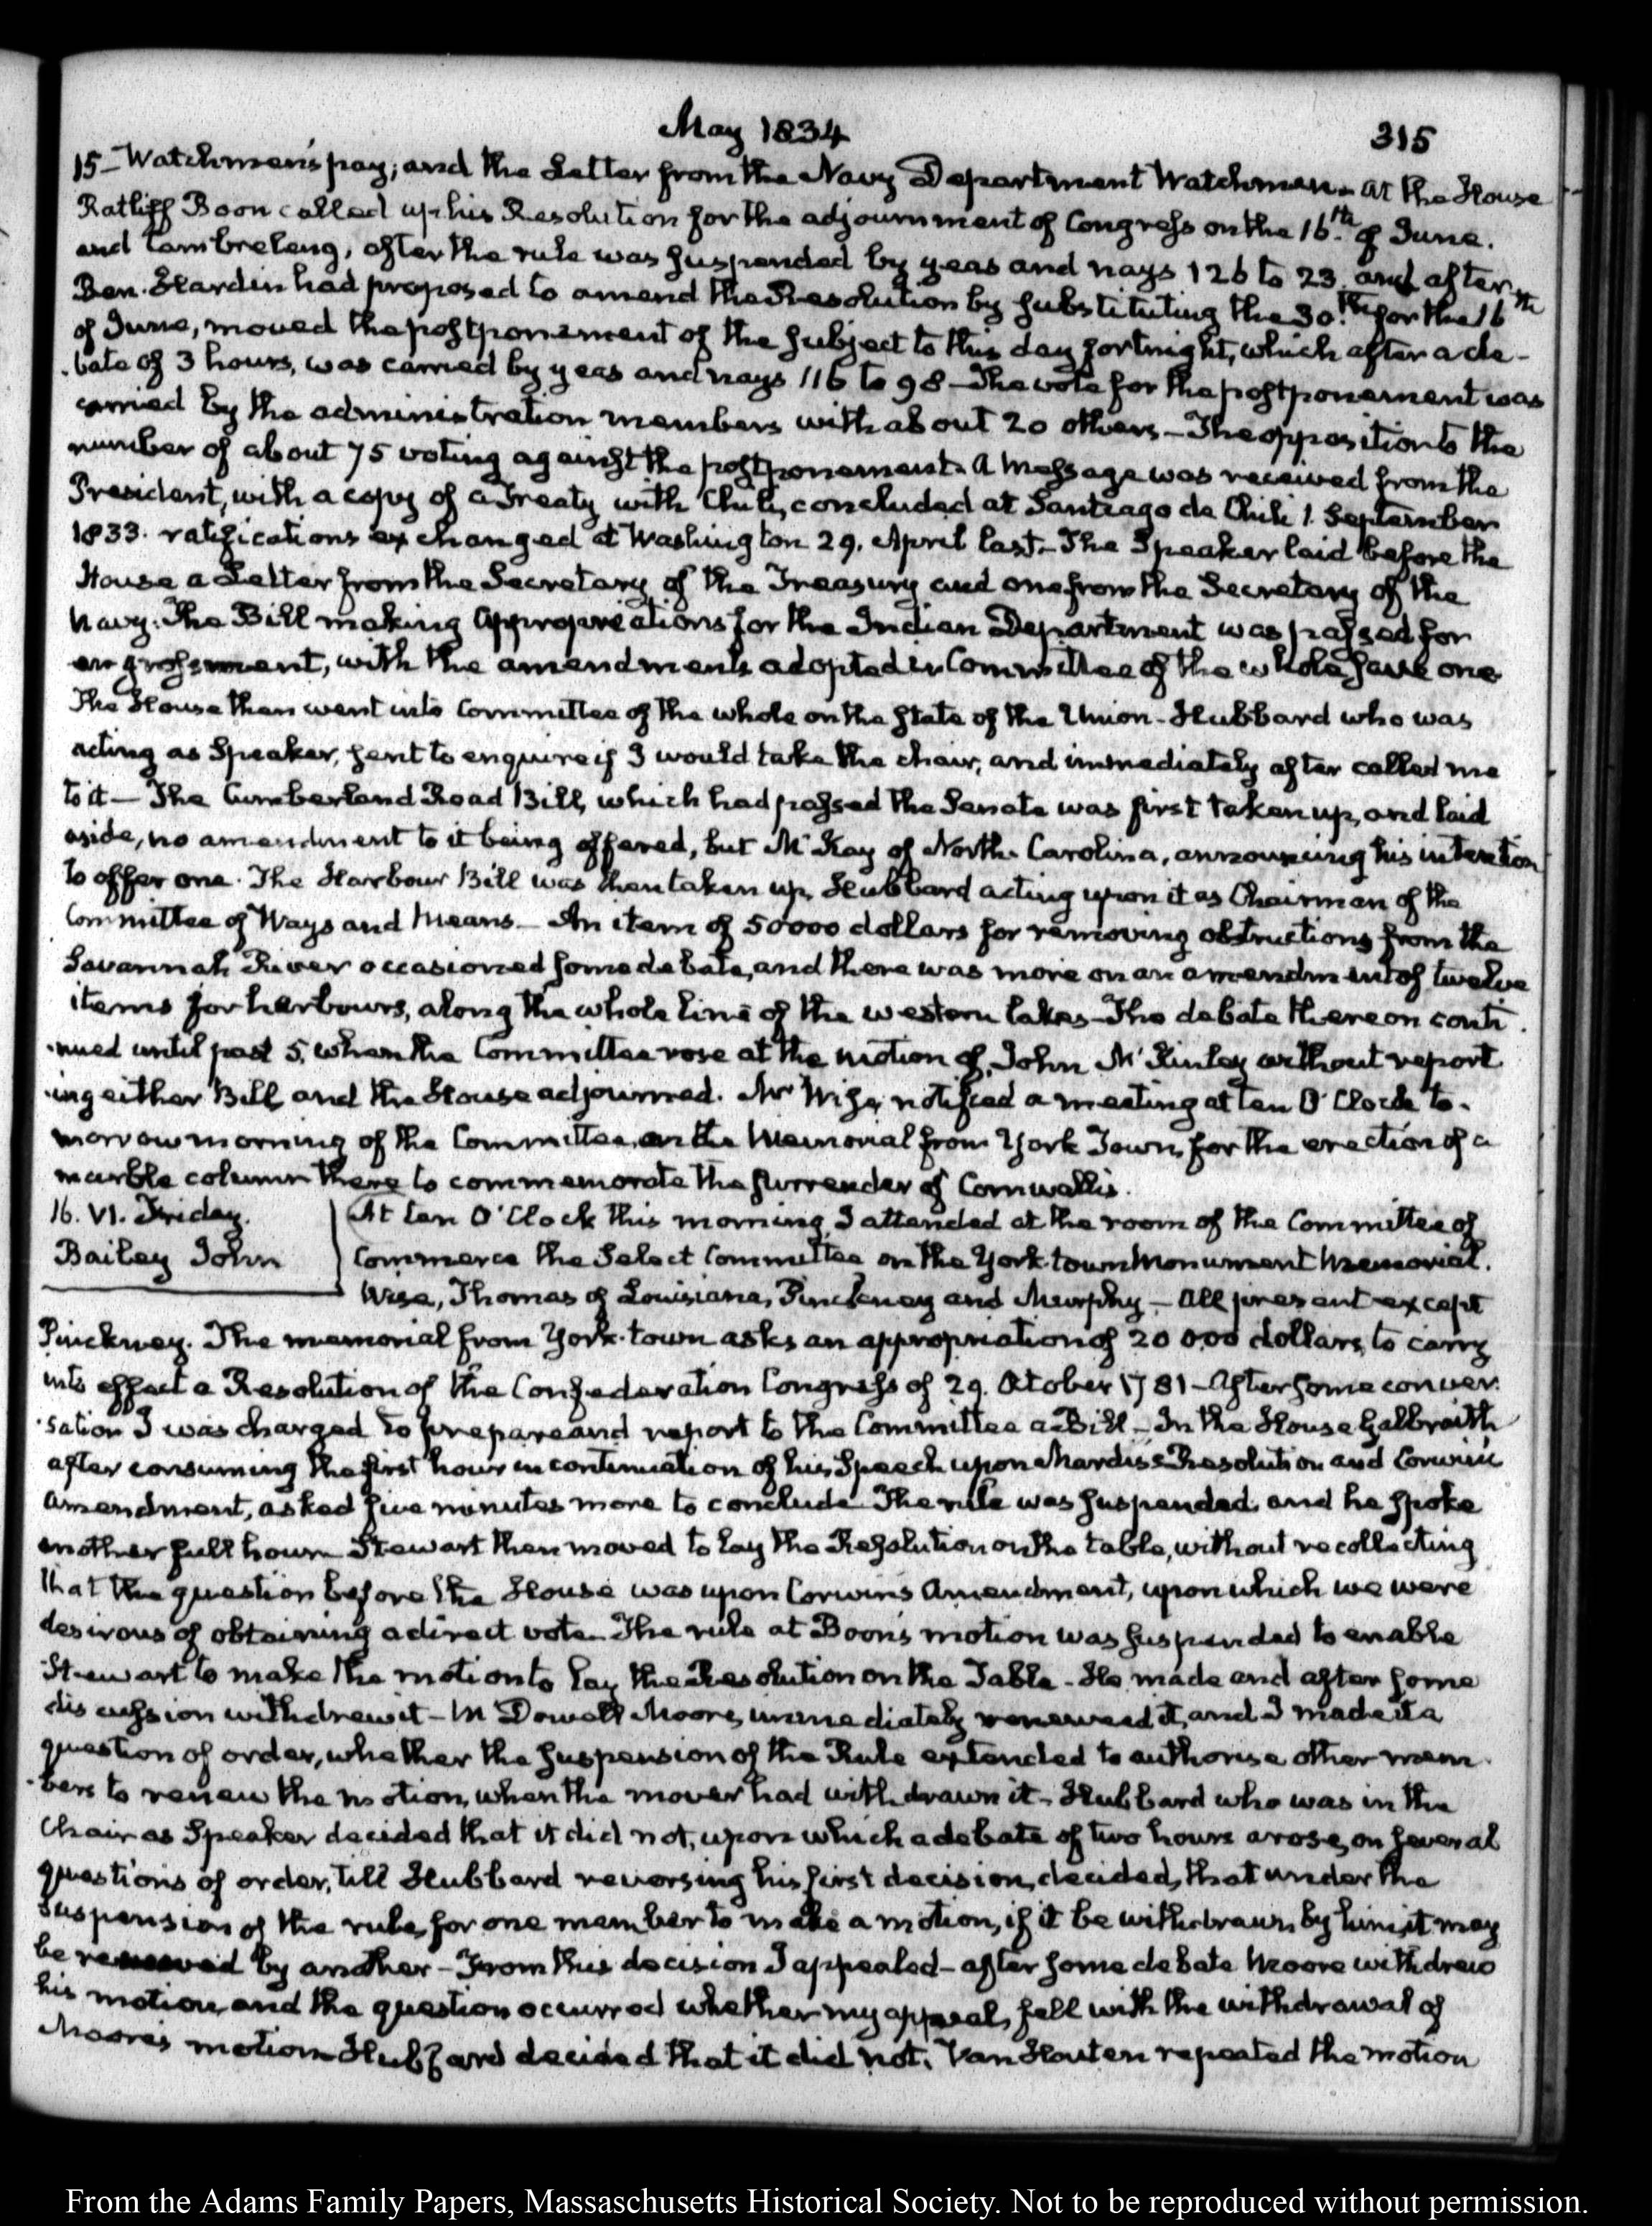 May 1834
315
15 – Watchmen's pay; and the Letter from the Navy Department Watchmen – At the House
Ratliff Boon called up his Resolution for the adjournment of Congress on the 16.th of June.
and Cambreleng, after the rule was suspended by yeas and nays 126 to 23 and after
Ben. Hardin had proposed to amend the Resolution by substituting the 30.th for the 16th
of June, moved the postponement of the subject to this day fortnight, which after a de-
-bate of 3 hours, was carried by yeas and nays 116 to 98 – The vote for the postponement was
carried by the administration members with about 20 others – The opposition to the
number of about 75 voting against the postponement. A Message was received from the
President, with a copy of a Treaty with Chili, concluded at Santiago de Chili 1. September
1833. ratifications exchanged at Washington 29. April last – The Speaker laid before the
House a Letter from the Secretary of the Treasury and one from the Secretary of the
Navy. The Bill making Appropriations for the Indian Department was passed for
engrossment, with the amendments adopted in Committee of the whole save one
The House then went into Committee of the whole on the state of the Union – Hubbard who was
acting as Speaker, sent to enquire if I would take the chair, and immediately after called me
to it – The Cumberland Road Bill, which had passed the Senate was first taken up, and laid
aside, no amendment to it being offered, but McKay of North Carolina, announcing his intention
to offer one. The Harbour Bill was then taken up, Hubbard acting upon it as Chairman of the
Committee of Ways and Means – An item of 50000 dollars for removing obstructions from the
Savannah River occasioned some debate, and there was more on an amendment of twelve
items for harbours, along the whole line of the western lakes – The debate thereon conti-
-nued until past 5. when the Committee rose at the motion of John McKinley without report
-ing either Bill and the House adjourned. Mr Wise notified a meeting at ten O'Clock to-
morrow morning of the Committee on the Memorial from York Town, for the erection of a
marble column there to commemorate the surrender of Cornwallis.
16. VI. Friday.
Bailey John
At ten O'Clock this morning I attended at the room of the Committee of
Commerce the Select Committee on the York-town Monument Memorial.
Wise, Thomas of Louisiana, Pinckney and Murphy – All present except
Pinckney. The memorial from York-town asks an appropriation of 20 000 dollars, to carry
into effect a Resolution of the Confederation Congress of 29. October 1781 – After some conver-
-sation I was charged to prepare and report to the Committee a Bill – In the House Galbraith
after consuming the first hour in continuation of his Speech upon Mardis's Resolution and Corwin's
amendment, asked five minutes more to conclude. The rule was suspended and he spoke
another full hour – Stewart then moved to lay the Resolution on the table, without recollecting
that the question before the House was upon Corwin's Amendment, upon which we were
desirous of obtaining a direct vote. The rule at Boon's motion was suspended to enable
Stewart to make the motion to lay the Resolution on the Table – He made and after some
discussion withdrew it – McDowell Moore, immediately renewed it, and I made it a
question of order, whether the suspension of the Rule extended to authorise other mem-
-bers to renew the motion, when the mover had withdrawn it – Hubbard who was in the
Chair as Speaker decided that it did not, upon which a debate of two hours arose, on several
questions of order, till Hubbard reversing his first decision, decided, that under the
suspension of the rule, for one member to make a motion, if it be withdrawn by him, it may
be renewed by another – From this decision I appealed – after some debate Moore withdrew
his motion, and the question occurred whether my appeal, fell with the withdrawal of
Moore's motion. Hubbard decided that it did not. Van Houten repeated the motion
From the Adams Family Papers, Massaschusetts Historical Society. Not to be reproduced without permission.